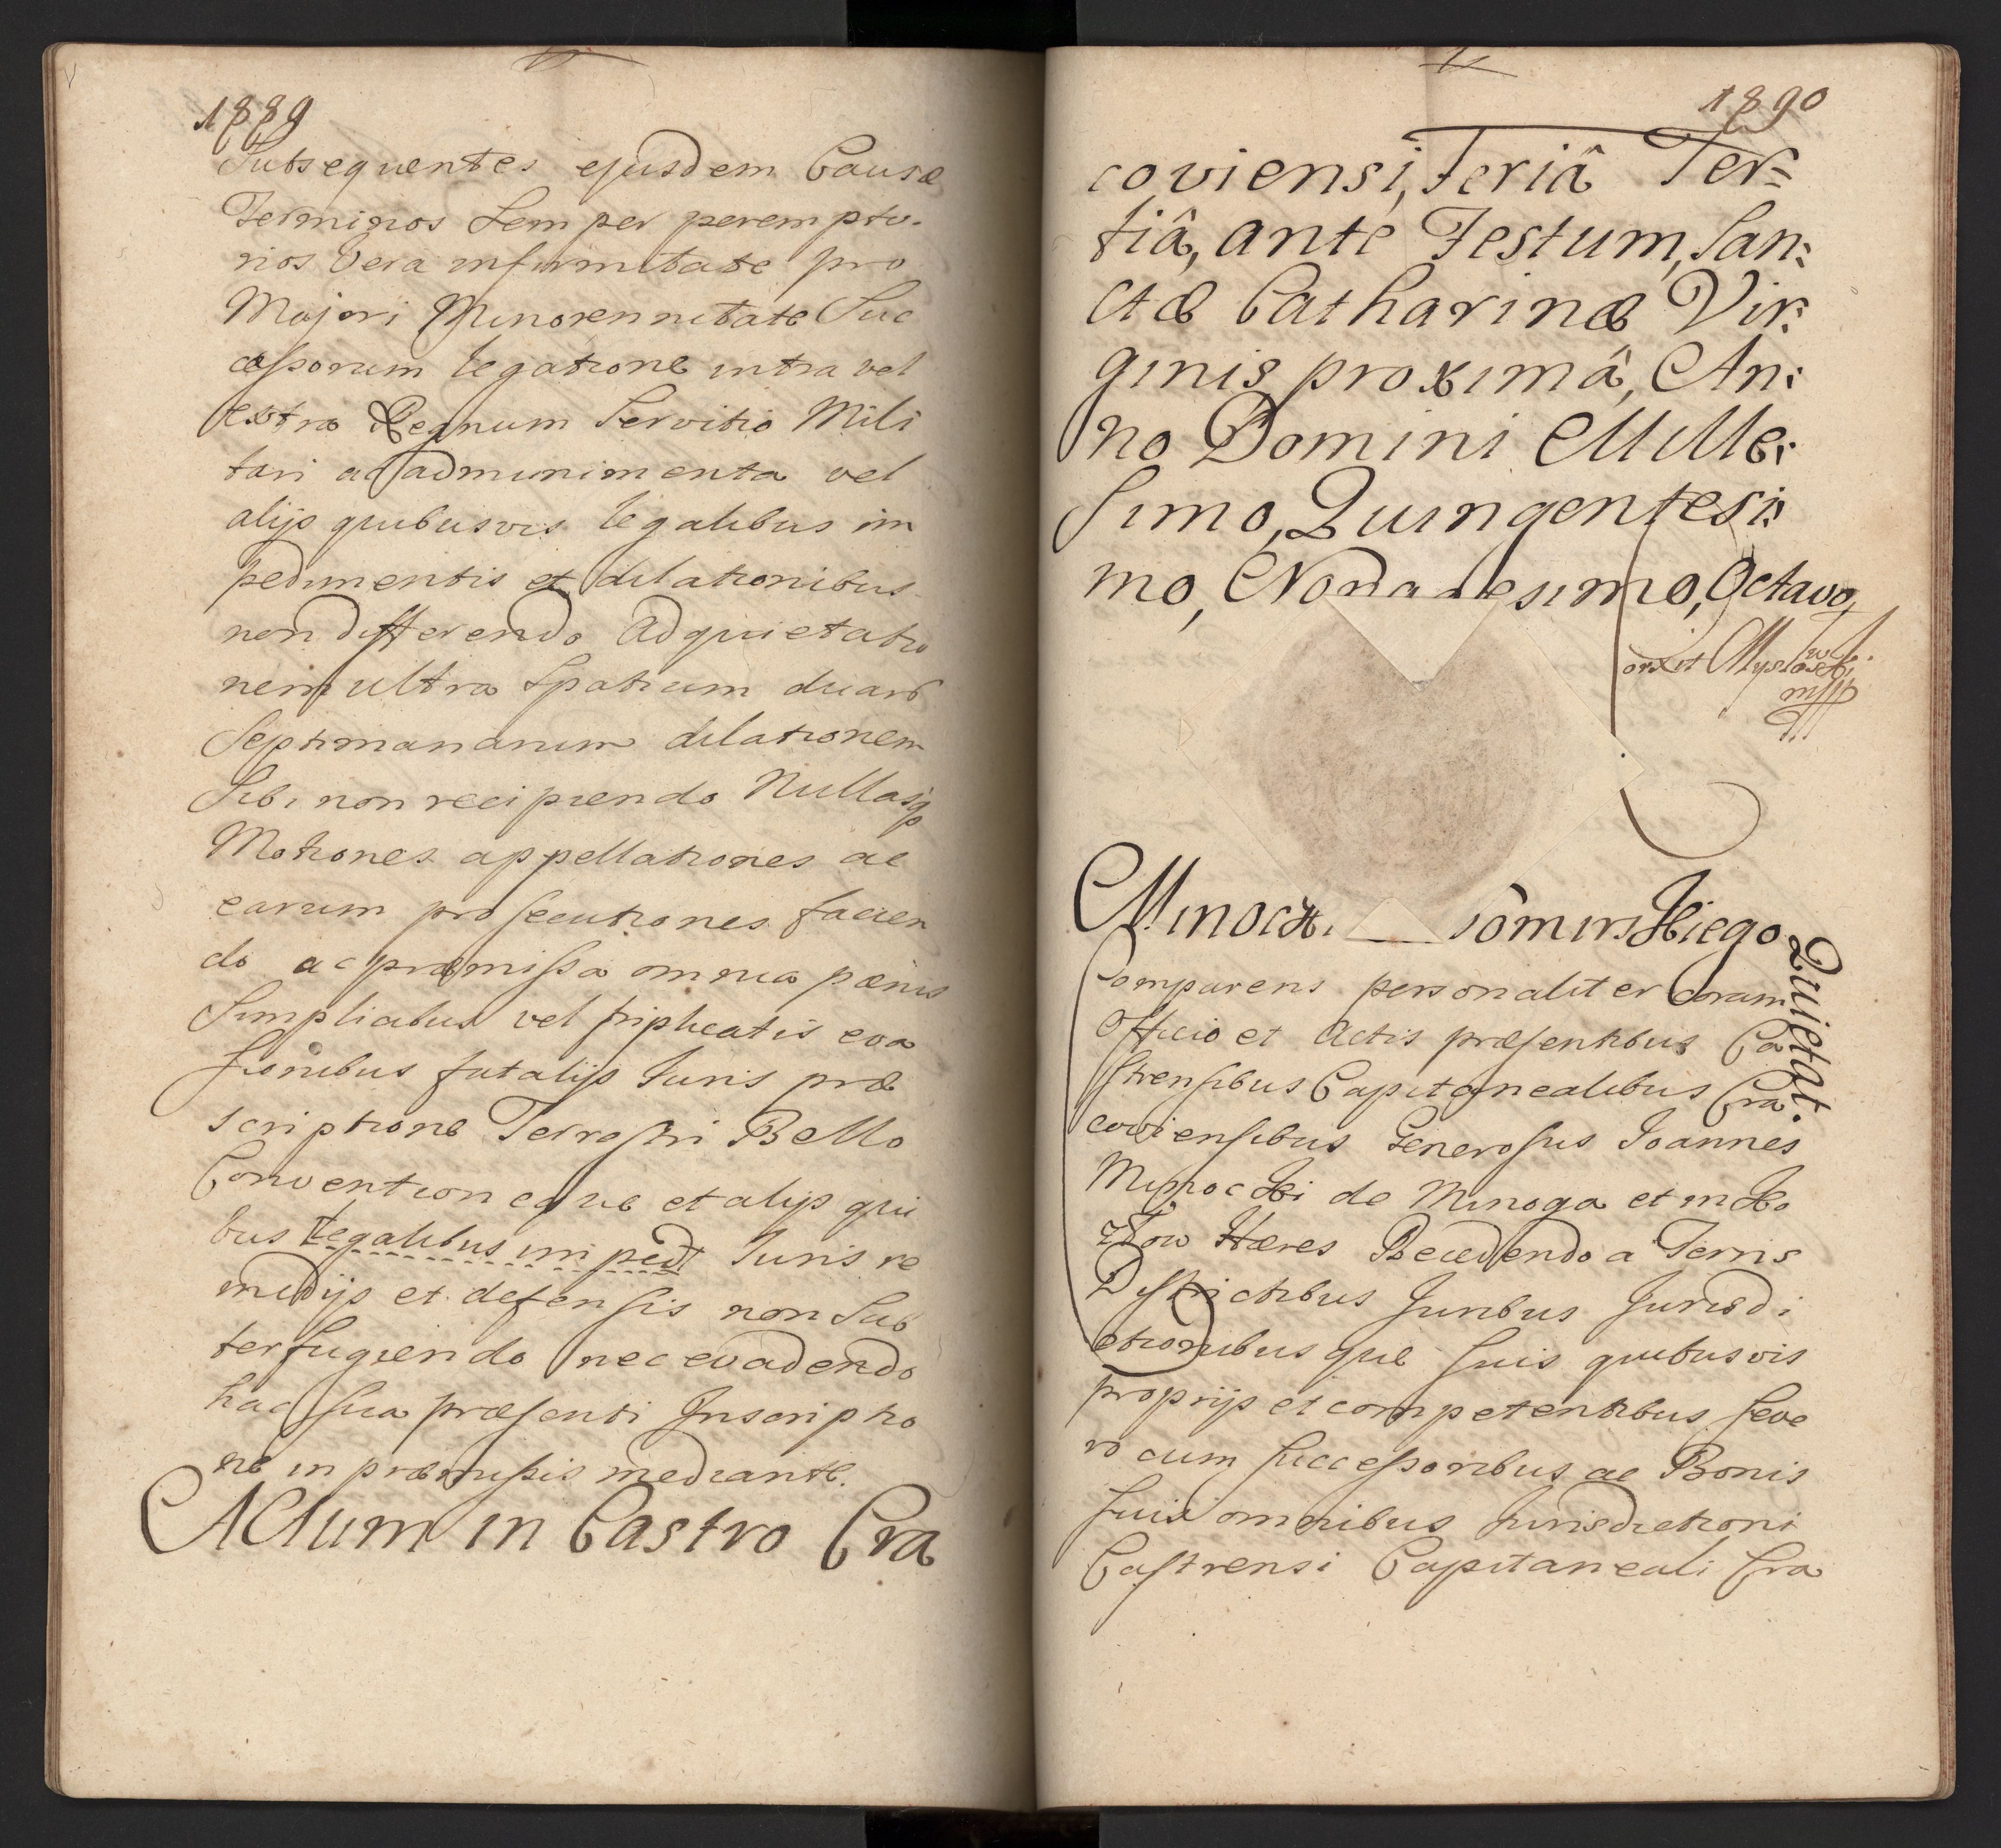 1889
Subsequentes ejusdem Causæ
Terminos Semper perempto-
rios Vera infirmitate pro
Majori Minorennitate Suc
cessorum legatione intra vel
extra Regnum Servitio Mili
tari ac admunimenta vel
alijs quibusvis legalibus im
pedimentis et dilationibus
non differendo Ad quietatio
nem ultra Spatium duarū
Septimanarum dilationem
Sibi non recipiendo Nullasq₃
Motiones appellationes ac
earum prosecutiones facien
do ac præmissa omnia pænis
Simplicibus vel triplicatis eva
sionibus fatalijs Juris præ
scriptione Terrestri Bello
Conventioneque et alijs qui
bus legalibus imped̄t Juris re
medijs et defensis non Sub
terfugiendo nec evadendo
hac sua præsenti Inscriptio
ne in præmissis mediante.
Actum in Castro Cra
1890
coviensi, Feriâ Ter=
tiâ, ante Festum, San:
ctæ Catharinæ Vir:
ginis proximâ, An:
no Domini Mille:
simo, Quingentesi:
mo, Nonagesimo, Octavo,
Comparens personaliter Coram
Officio et Actis præsentibus Ca
strensibus Capitanealibus Cra
coviensibus Generosus Joannes
Minocki de Minoga et in Ko
złow Hæres Recedendo a Terris
Districtibus Juribus Jurisdi
ctionibusque suis quibusvis
proprijs et competentibus seve
ro cum successoribus ac Bonis
suis omnibus Jurisdictioni
Castrensi Capitaneali Cra
Quietat.